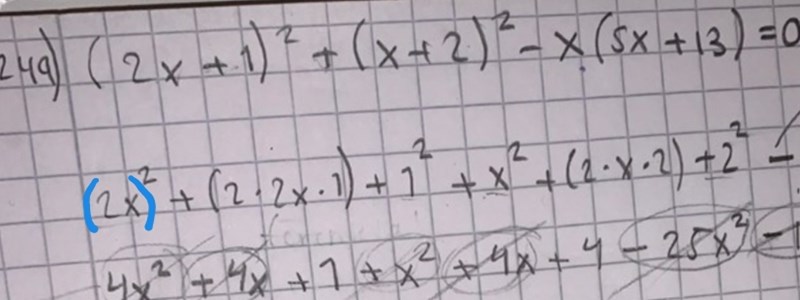 249) (2x+1)² + (x+2)² - x(5x+13) = 0
(2x)² + (2·2x·1) + 1² + x² + (2·x·2) + 2² -
4x² + 4x + 1 + x² + 4x + 4 - 25x² -